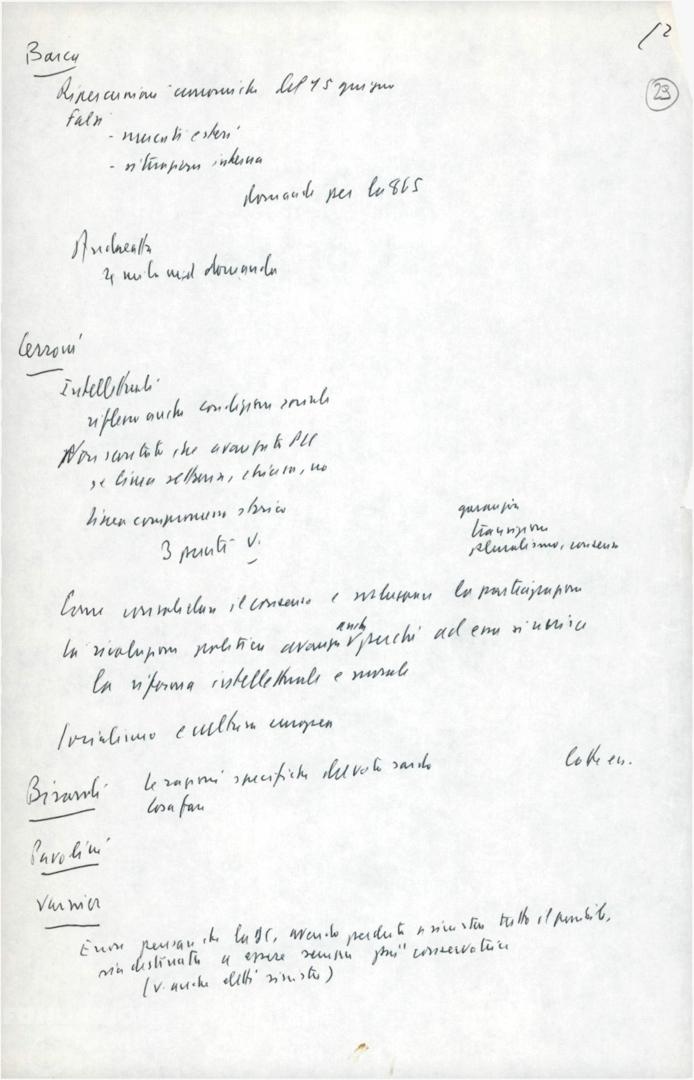 12
29
Barca
Ripercussioni economiche del 15 giugno
Falsi
- mercati esteri
- situazione interna
domande per la 865
Andreatta
2 mila mld domanda
Cerroni
Intellettuali
riflesso anche condizioni sociali
Non scontato che avanzata PCI
se linea chiara, no
linea compromesso storico
3 punti v.
garanzia
transizione
pluralismo, consenso
Come consolidare il consenso e sviluppare la partecipazione
la rivoluzione politica avanza anche perché ad essa si unisca
la riforma intellettuale e morale
Socialismo e cultura europea
Birardi le ragioni specifiche del voto sardo
Cosa fare
Pavolini
Varnier
Errore pensare che la DC, avendo perduto a sinistra tutto il possibile,
sia destinata a essere sempre più conservatrice
(v. anche eletti sinistra)